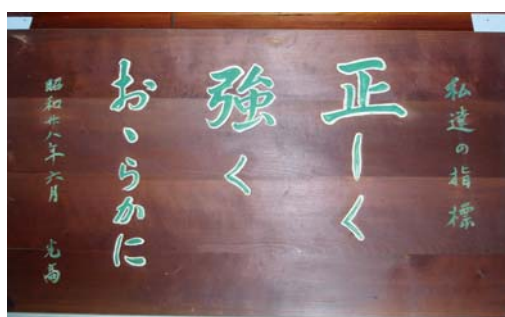 私達の指標
正しく
強く
おゝらかに
昭和廿八年六月 光高